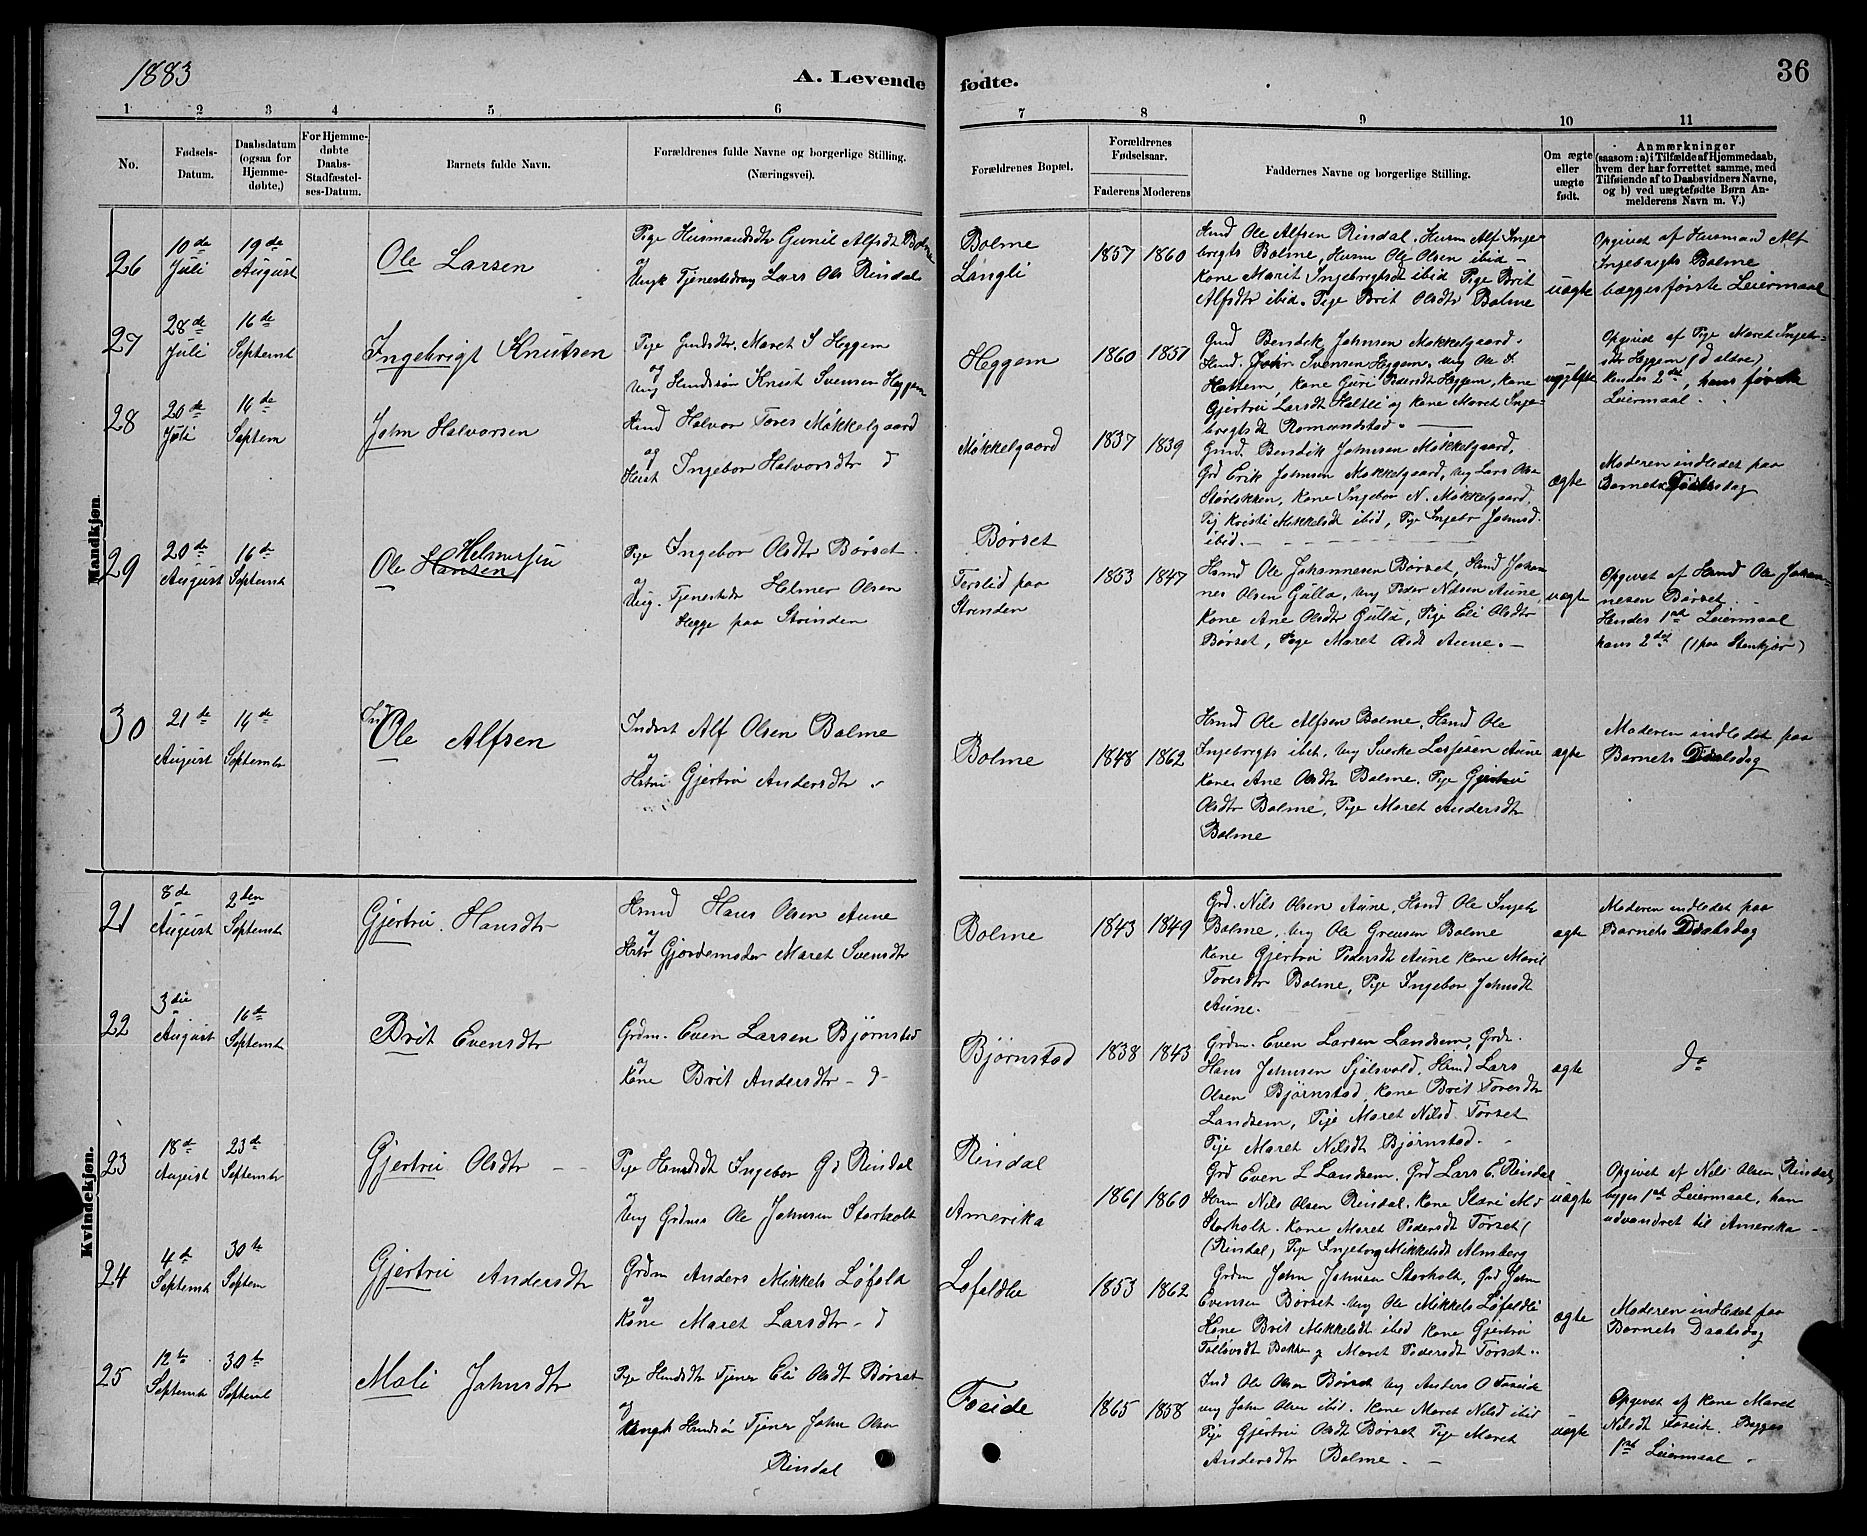 1883
A. Levende fødte.
36
1 2 3 4 5 6 7 8 9 10 11
No.
Fødsels-Datum.
Daabsdatum (ogsaa for Hjemme-døbte,)
For Hjemme-døbte Daabs-Stadfæstel-ses-Datum.
Barnets fulde Navn.
Forældrenes fulde Navne og borgerlige Stilling. (Næringsvei).
Forældrenes Bopæl.
Forældrenes Fødselsaar.
Faderens Moderens
Faddernes Navne og borgerlige Stilling.
Om ægte eller uægte født.
Anmærkninger
(saasom: a) i Tilfælde af Hjemmedaab,
hvem der har forrettet samme, med
Tilføiende af to Daabsvidners Navne,
og b) ved uægtefødte Børn An-
melderens Navn m. V.)
Mandkjøn.
26
10de Juli
19de August
Ole Larsen
Pige Husmandsdtr Gunil Alfsdt Bolme
og
Ungk Tjenestedreng Lars Ols Rindal
Bolme
Langli
1857 1860
Hmd Ole Alfsen Rindal, Husm Alf Inge-
brigts Bolme, Husm Ole Olsen ibid -
Kone Marit Ingebrigtsdt ibid Pige Brit
Alfsdtr ibid. Pige Brit Olsdtr Bolme
uægte
Opgivet af Husmand Alf
Ingebrigts Bolme
begges første Leiermaal
27
28de Juli
16de Septembr
Ingebrigt Knutsen
Pige Gmdsdtr. Maret I Heggem
og
Ung Hmdssøn Knut Svensen Heggem
Heggem
1860 1857
Gmd Bendik Johnsen Møkkelgaard.
Hmd. John Svensen Heggem, Ung Ole
Hattem, Kone Guri Pedersdt Heggem, Kone
Gjertrü Larsdt Haltli og Kone Maret Inge-
brigtsdt Romundstad. -
uægte
Opgivet af Pige Maret Ingeb-
sdtr Heggem (d ældre)
Hendes 2det, hans første
Leiermaal.
28
20de Juli
16de Septem
John Halvorsen
Hmd Halvor Tores Møkkelgaard
og
Hust Ingebor Halvorsdtr d
Møkkelgaard
1837 1839
Gmd. Bendik Johnsen Møkkelgaard,
Grd Erik Johnsen Møkkelgaard, Ung Lars Ols
Størlökken, Kone Ingebor N. Møkkelgaard,
Pig Kristi Mikkelsdt ibid, Pige Ingebr Johnsd.
ibid. -
ægte
Moderen indledet paa
Barnets Daabsdag
29
20de August
16de Septembr
Ole Hansen Helmersen
Pige Ingebor Olsdtr Børset
og
Ung. Tjenestedr Helmer Olsen
Hegge paa Strinden
Børset
Forstid paa
Strinden
1853 1847
Hmd Ole Johannesen Børset, Hmd Johan-
nes Olsen Gulla, Ung Peder Nilsen Aune,
Kone Ane Olsdtr Gulla, Pige Eli Olsdtr
Børset, Pige Maret Olsdt Aune. -
uægte
Opgivet af Hmd Ole Johan-
nesen Børset.
Hendes 1ste Leiermaal
hans 2det (1 paa Stenkjær)
30
21de August
16de Septembr
Ole Alfsen
Inderst Alf Olsen Bolme
og
Hstru Gjertrü Andersdtr
Bolme
1848 1862
Hmd Ole Alfsen Bolme, Hmd Ole
Ingebrigts ibid. Ung Sverke Larsen Aune
Kone Ane Olsdtr Bolme. Pige Gjertrü
Olsdtr Bolme, Pige Maret Andersdtr
Bolme
ægte
Moderen indledet paa
Barnets Daabsdag
Kvindekjøn.
21
8de August
2den Septembr
Gjertrü Hansdtr
Hmd Hans Olsen Aune
og
Hstr Gjordemoder Maret Svensdtr
Bolme
1843 1849
Grd. Nils Olsen Aune, Hmd Ole Ingeb
Bolme, Ung Ole Greusen Bolme
Kone Gjertrü Pedersdt Aune Kone Marit
Toresdtr Bolme, Pige Ingebor Johnsdt
Aune.
ægte
Moderen indledet paa
Barnets Daabsdag
22
3die August
16de Septembr
Brit Evensdtr
Grdm. Even Larsen Bjørnstad
og
Kone Brit Andersdtr - d -
Bjørnstad
1838 1843
Grdm. Even Larsen Landsem, Grdm.
Hans Johnsen Sjølsvold, Hmd Lars
Olsen Bjørnstad, Kone Brit Toresdtr
Landsem, Pige Maret Nilsd Torset
Pige Maret Nilsdt Bjørnstad. -
ægte
do
23
18de August
23de Septembr
Gjertrü Olsdtr - -
Pige Hmdsdt Ingebor Gd Rindal
og
Ung Grdms Ole Johnsen Storholt
Rindal
Amerika
1861 1860
Grd Even L Landsem, Grd Lars E. Rindal
Hmd Nils Olsen Rindal, Kone Mari Md
Storholt. Kone Maret Pedersdt Torset (
(Rindal, Pige Ingeborg Mikkelsdt Almberg
uægte
Opgivet af Nils Olsen Rindal,
begges 1ste Leiermaal, han
udvandret til Amerika -
24
4de Septembr
30te Septem
Gjertrü Andersdtr
Grdm Anders Mikkels Løfald
og
Kone Maret Larsdtr - d
Løfaldli
1853 1862
Grdm John Johnsen Storholt, Grd John
Evensen Børset. Ung Ole Mikkels Løfaldli
Kone Brit Mikkelsdt ibid Kone Gjertrü
Tollevsdt Bakken og Maret Pedersdt Torset.
ægte
Moderen indledet paa
Barnets Daabsdag
25
12te Septembr
30te Septembr
Mali Johnsdtr
Pige Hmdsdt Tjener Eli Olsdt Børset
og
Ungk Hmdssøn Tjener John Olsen
Rindal
Foside
1865 1858
Ind Ole Olsen Børset Ung Anders O Foseide
ung John Olsen ibid. Kone Maret Nilsd ibid
Pige Gjertrü Olsdt Børset Pige Maret
Andersdtr Bolme. -
uægte
Opgivet af Kone Maret
Nilsdt Foseid. Begges
1ste Leiermaal -